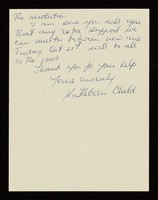 the resolution.
I am sure you will agree
that any extra support we
can muster between now and
Tuesday Oct 21st will be all
to the good.
Thank you for your help
Yours sincerely
Child